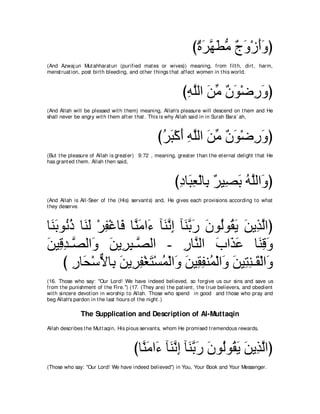 (وَأَزْوَجٌ مُّطَهَّرَةٌ)
(And Azwajun Mutahharatun (purified mates or wives)) meaning, from filth, dirt, harm,
menstruation, post birth bleeding, and other things that affect women in this world.
(وَرِضْوَنٌ مِّنَ اللَّهِ)
(And Allah will be pleased with them) meaning, Allah's pleasure will descend on them and He
shall never be angry with them after that. This is why Allah said in in Surah Bara'ah,
(وَرِضْوَنٌ مِّنَ اللَّهِ أَكْبَرُ)
(But the pleasure of Allah is greater) 9:72 , meaning, greater than the eternal delight that He
has granted them. Allah then said,
(وَاللَّهُ بَصِيرٌ بِالْعِبَادِ)
(And Allah is All-Seer of the (His) servants) and, He gives each provisions according to what
they deserve.
(الَّذِينَ يَقُولُونَ رَبَّنَآ إِنَّنَآ ءَامَنَّا فَاغْفِرْ لَنَا ذُنُوبَنَا
وَقِنَا عَذَابَ النَّارِ - الصَّـبِرِينَ وَالصَّـدِقِينَ
وَالْقَـنِتِينَ وَالْمُنفِقِينَ وَالْمُسْتَغْفِرِينَ بِالاٌّسْحَارِ )
(16. Those who say: "Our Lord! We have indeed believed, so forgive us our sins and save us
from the punishment of the Fire.") (17. (They are) the patient, the true believers, and obedient
with sincere devotion in worship to Allah. Those who spend in good and those who pray and
beg Allah's pardon in the last hours of the night.)
The Supplication and Description of Al-Muttaqin
Allah describes the Muttaqin, His pious servants, whom He promised tremendous rewards,
(الَّذِينَ يَقُولُونَ رَبَّنَآ إِنَّنَآ ءَامَنَّا)
(Those who say: "Our Lord! We have indeed believed") in You, Your Book and Your Messenger.